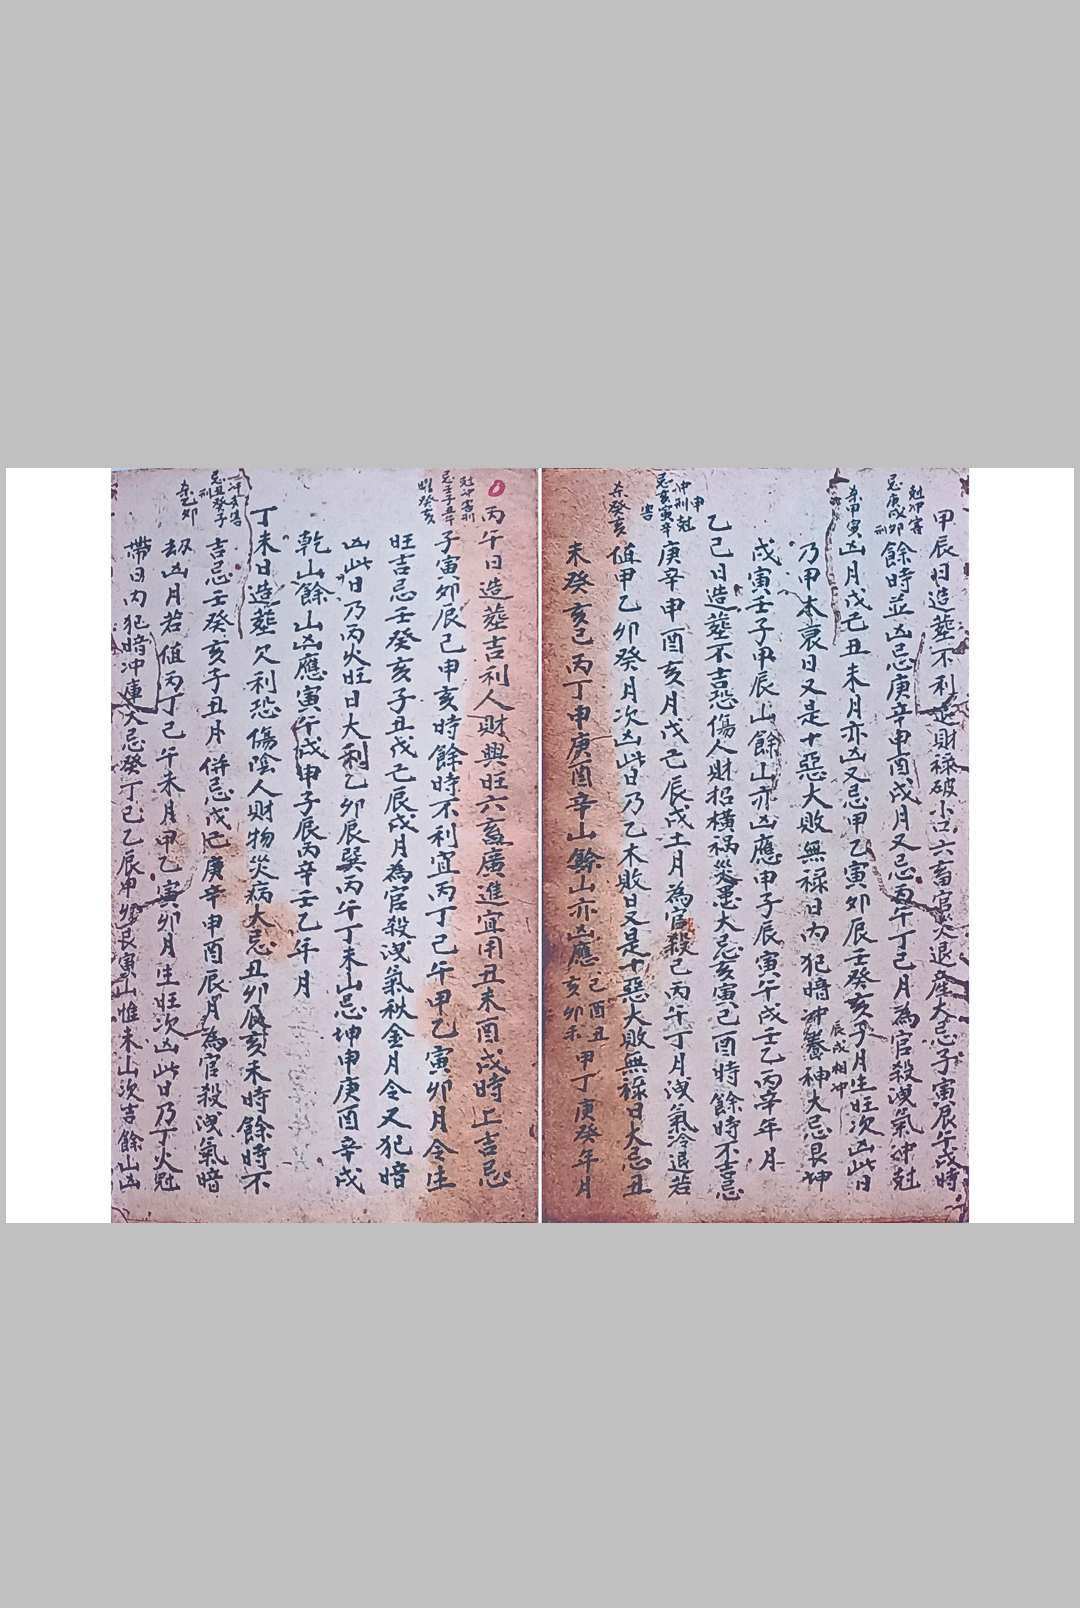 甲辰日造塟不利退財祿破小口六畜官災退産大忌子寅辰午戌時
尅冲害
忌庚戌卯
刑
餘時並凶忌庚辛申酉戌月又忌丙午丁己月為官殺洩氣冲尅
杀甲寅
凶月戊己丑未月亦凶又忌甲乙寅卯辰壬癸亥子月生旺次凶此日
乃甲木衰日又是十惡大敗無祿日内犯暗冲養神大忌艮坤
辰戌相冲
戌寅壬子甲辰山餘山亦凶應甲子辰寅午戌壬乙丙辛年月
乙己日造塟不吉恐傷人財招横禍災患大忌亥寅己酉時餘時不吉忌
申
冲刑尅
忌亥寅辛
害
庚辛申酉亥月戊己辰戌土月為官殺己丙午丁月洩氣冷退若
杀癸亥
值甲乙卯癸月次凶此日乃乙木敗日又是十惡大敗無祿日大忌丑
未癸亥己丙丁申庚酉辛山餘山亦凶應
己酉丑
亥卯未
甲丁庚癸年月
丙午日造塟吉利人財興旺六畜廣進宜用丑未酉戌時上吉忌
尅冲害刑
忌壬子丑午
癸亥
子寅卯辰己申亥時餘時不利宜丙丁己午甲乙寅卯月令生
旺吉忌壬癸亥子丑戊己辰戌月為官殺洩氣秋金月令又犯暗
凶此日乃丙火旺日大利乙卯辰巽丙午丁未山忌坤申庚酉辛戌
乾山餘山凶應寅午戌申子辰丙辛壬乙年月
丁未日造塟欠利恐傷陰人財物災病大忌丑卯辰亥未時餘時不
忌丑癸子
刑
吉忌壬癸亥子丑月併忌戊己庚辛申酉辰月為官殺洩氣暗
杀乙卯
刼凶月若值丙丁己午未月甲乙寅卯月生旺次凶此日乃丁火冠
帶日内犯暗冲庫大忌癸丁己乙辰申卯艮寅山惟未山次吉餘山凶